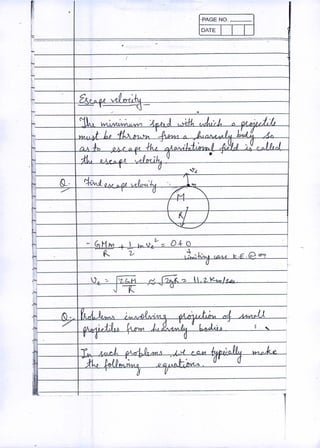 PAGE NO.
DATE
Escape velocity
The minimum speed with which a projectile
must be thrown from a heavenly body so
as to escape the gravitational field is called
the escape velocity.
Q. Find escape velocity
Ve
M
R
- GMm/R + 1/2 m Ve² = 0 + 0
Limiting case K.E. @ ∞
Ve = √(2GM/R) ≈ √(2gR) = 11.2 Km/sec.
Q. Problems involving projection of small
projectiles from heavenly bodies
In such problems, we can typically make
the following equations.